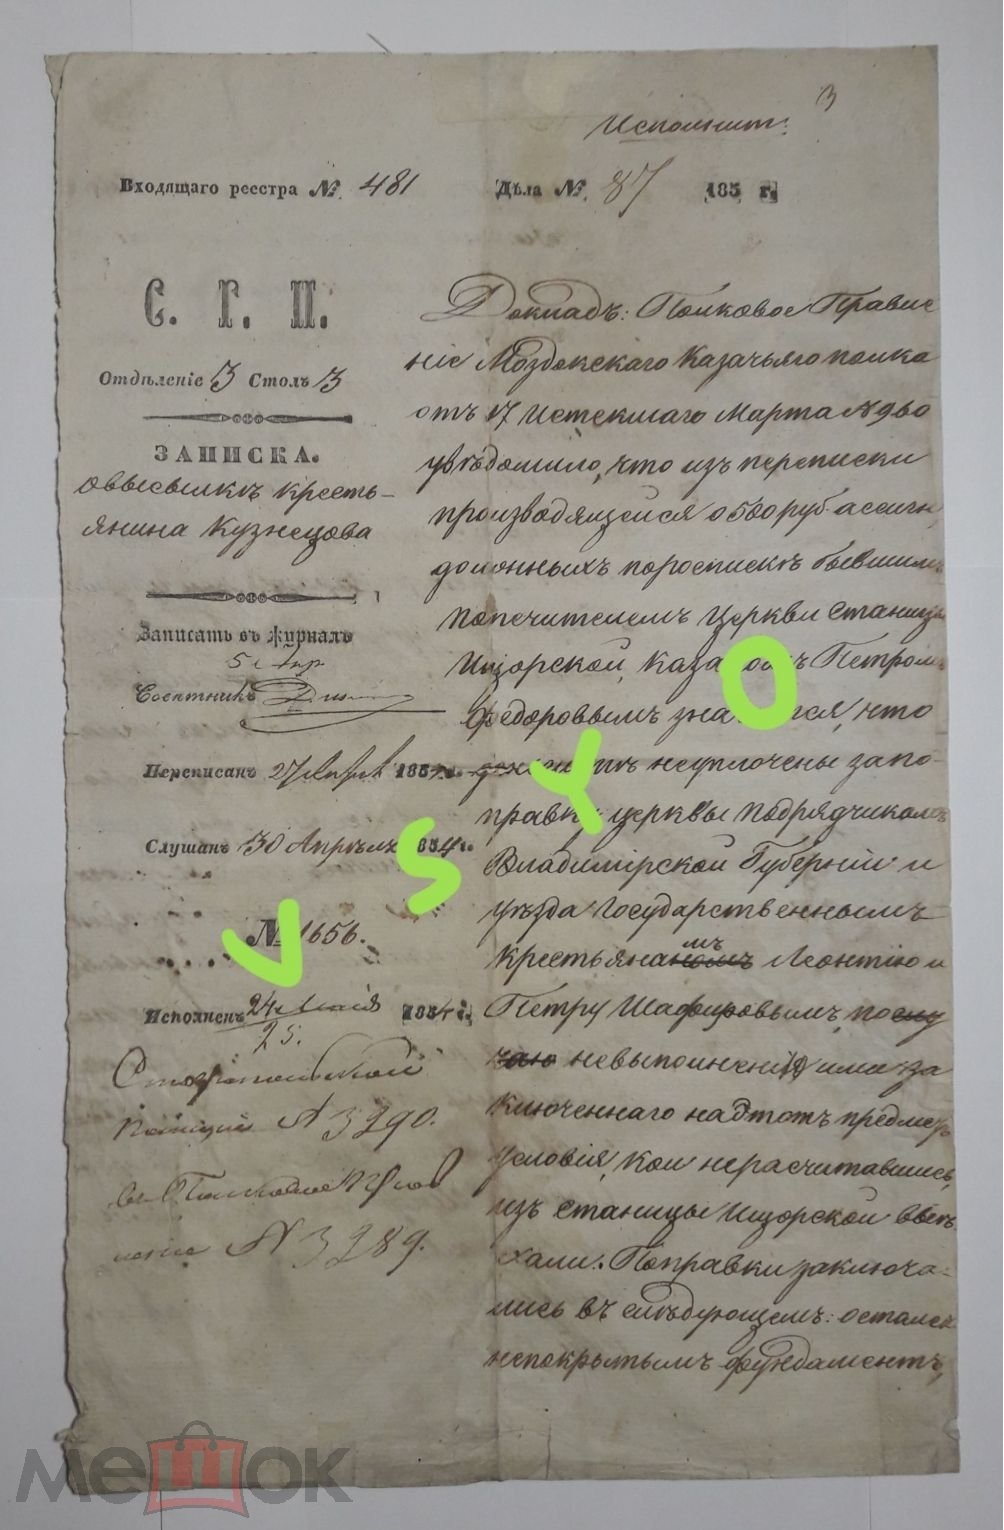 3
Исполнит:
Входящаго реестра № 481
Дѣла № 87 185 г.
С. Г. П.
Отдѣленіе 3 Столъ 3
ЗАПИСКА.
о высылкѣ кресть-
янина Кузнецова
Записать въ журналъ
5 Апр
Совѣтникъ
Переписанъ 27 Апрѣля 1854 г.
Слушанъ 30 Апрѣля 1854 г.
№ 1656.
Исполненъ 24 Маія 1854 г.
25.
Ставропольской
Полиціи № 3290.
въ Полковое Прав
леніе № 3289.
Докладъ: Полковое Правле
ніе Моздокскаго Казачьяго полка
отъ 17 истекшаго Марта № 960
увѣдомило, что изъ переписки
производящейся о 500 руб ассигн.
должныхъ по роспискѣ бывшимъ
попечителемъ церкви станицы
Ищорской, казакомъ Петромъ
Федоровымъ значится, что
неуплочены за по-
правку церквы подрядчикамъ
Владимірской Губерніи и
уѣзда Государственнымъ
крестьянамъ Леонтію и
Петру Шафировымъ, по слу
чаю невыполненія ими за
ключеннаго на этотъ предметъ
условія, кои нерасчитавшись,
изъ станицы Ищорской выѣ
хали. Поправки заключа-
лись въ слѣдующемъ: остался
непокрытымъ фундаментъ,
V S Y O
мешок